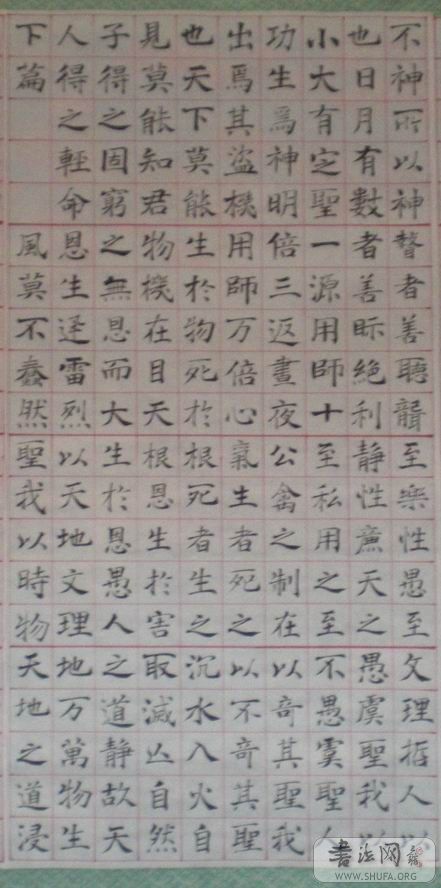 不神所以神
也日月有數
小大有定聖
功生焉神明
出焉其盜機
也天下莫能
見莫能知君
子得之固窮
人得之輕命
下篇
瞽者善聽聾
者善眎絕利
一源用師十
倍三返晝夜
用師万倍心
生於物死於
物機在目天
之無恩而大
恩生迅雷烈
風莫不蠢然
至樂性愚至
靜性廉天之
至私用之至
公禽之制在
氣生者死之
根死者生之
根恩生於害
生於恩愚人
以天地文理
聖我以時物
文理哲人以
愚虞聖我以
不愚虞聖人
以奇其聖我
以不奇其聖
沉水入火自
取滅亾自然
之道靜故天
地万萬物生
天地之道浸
書法网
WWW.SHUFA.ORG